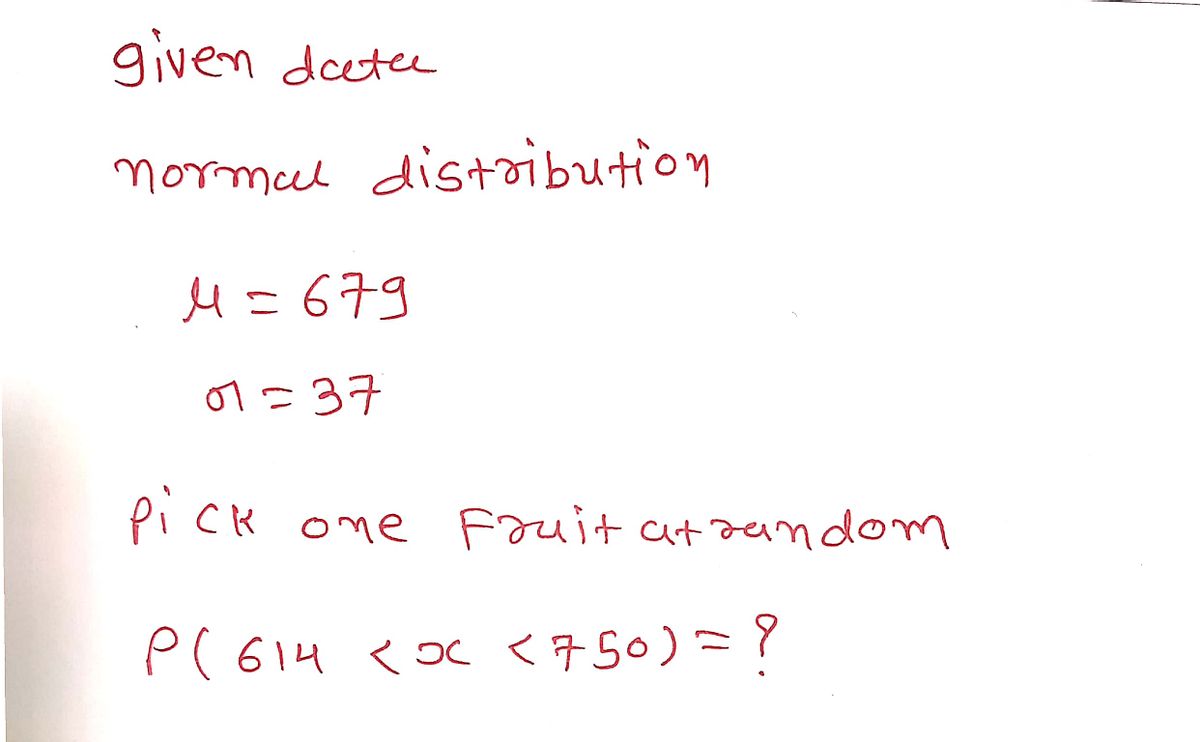 given data
normal distribution
μ = 679
σ = 37
Pick one Fruit at random
P( 614 < x < 750) = ?